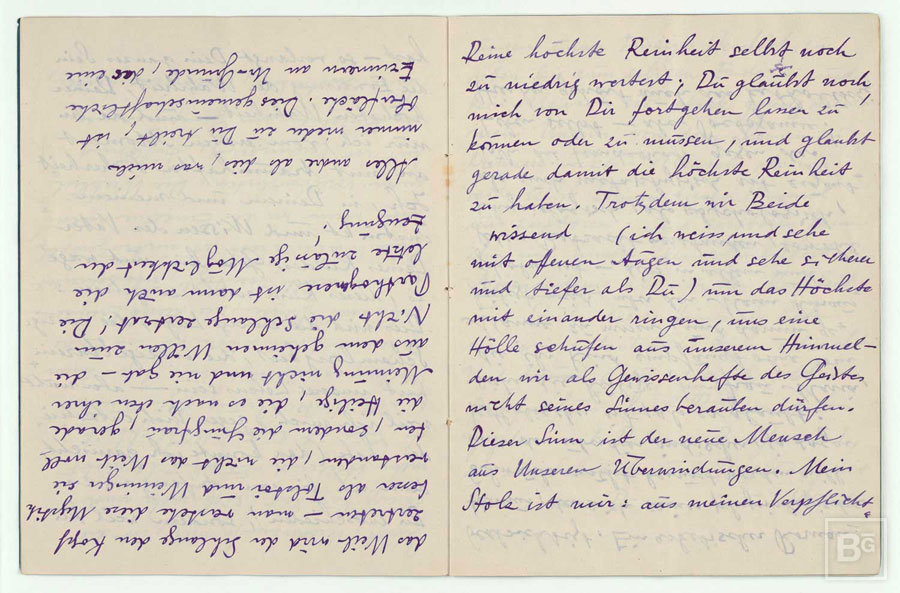 das Weib wird der Schlange den Kopf
zertreten – man verstehe diese Mystik
besser als Tolstoi und Weininger sie
verstanden, die nicht das Weib woll
ten, sondern die Jungfrau, gerade
die Heilige, die es nach eben ihrer
Meinung nicht und nie gab – die
aus dem geheimen Willen zum
Nichts die Schlange zertrat! Die
Parthogenen ist dann auch die
letzte zuläsige Möglichkeit der
Zeugung,
Alles andre als die, was mich
immer mehr zu Dir treibt, ist
Oberfläche. Dies gemeinschaftliche
Erinnern an Ur-Gründe, das eine
Deine höchste Reinheit selbst noch
zu niedrig wertest; Du glaubst noch,
mich von Dir fortgehen lassen zu
können oder zu müssen, und glaubst
gerade damit die höchste Reinheit
zu haben. Trotzdem wir Beide
wissend (ich weiss, und sehe
mit offenen Augen und sehe sicherer
und tiefer als Du) um das Höchste
mit einander ringen, uns eine
Hölle schufen aus unserem Himmel –
den wir als Gewissenhafte des Geistes
nicht seines Sinnes berauben dürfen.
Dieser Sinn ist der neue Mensch
aus Unseren Überwindungen. Mein
Stolz ist nur: aus meinen Verpflicht=
BG